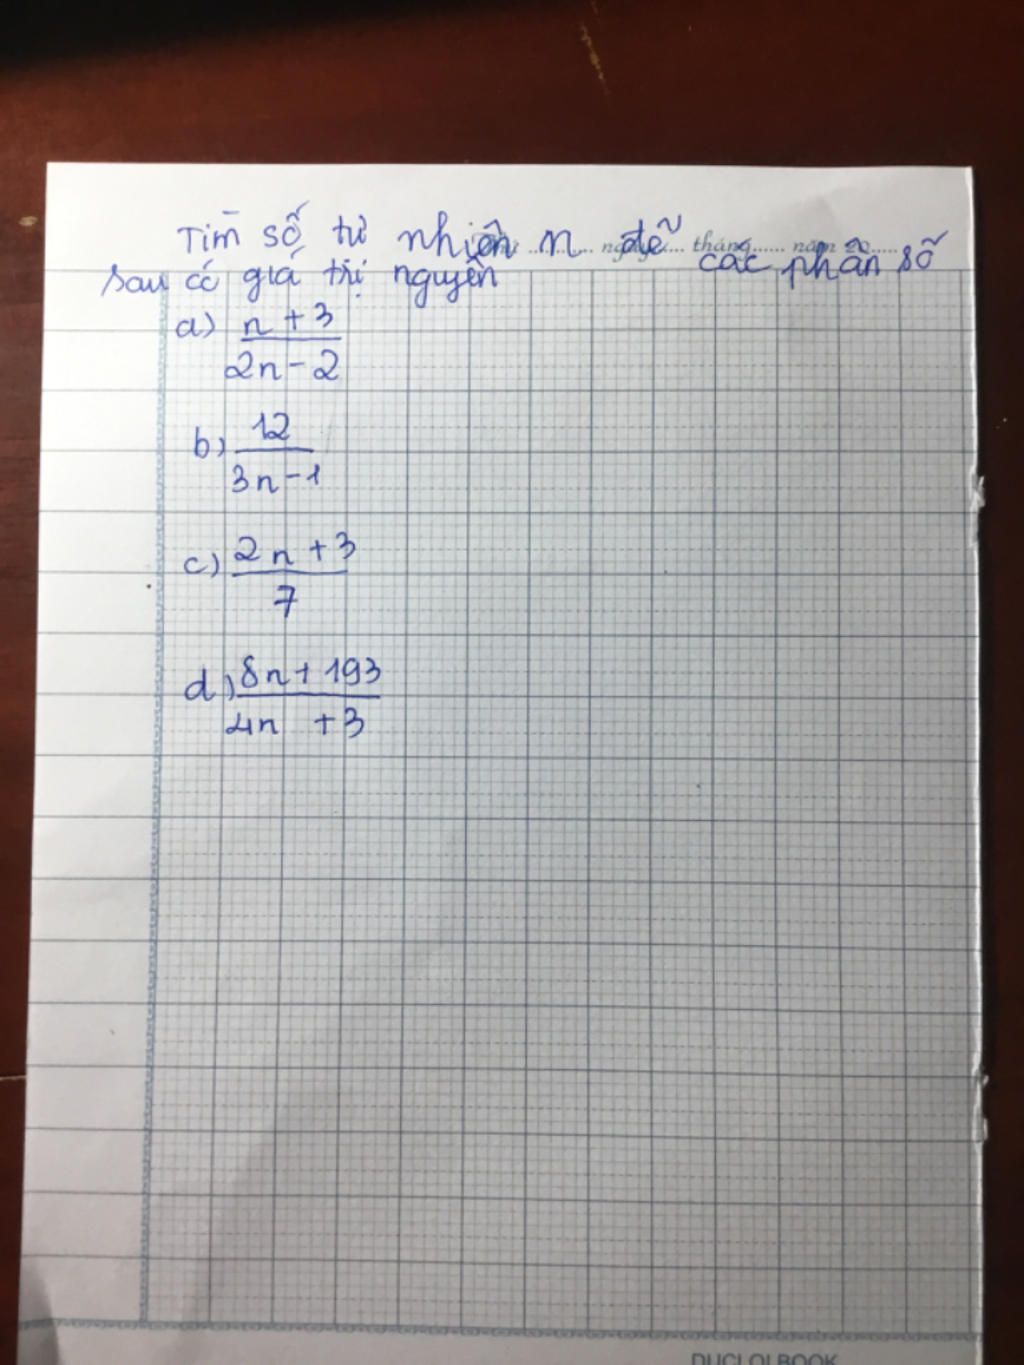 Tìm số tự nhiên n để các phân số
sau có giá trị nguyên
a) n + 3
2n - 2
b) 12
3n - 1
c) 2n + 3
7
d) 8n + 193
4n + 3
tháng...... năm 20......